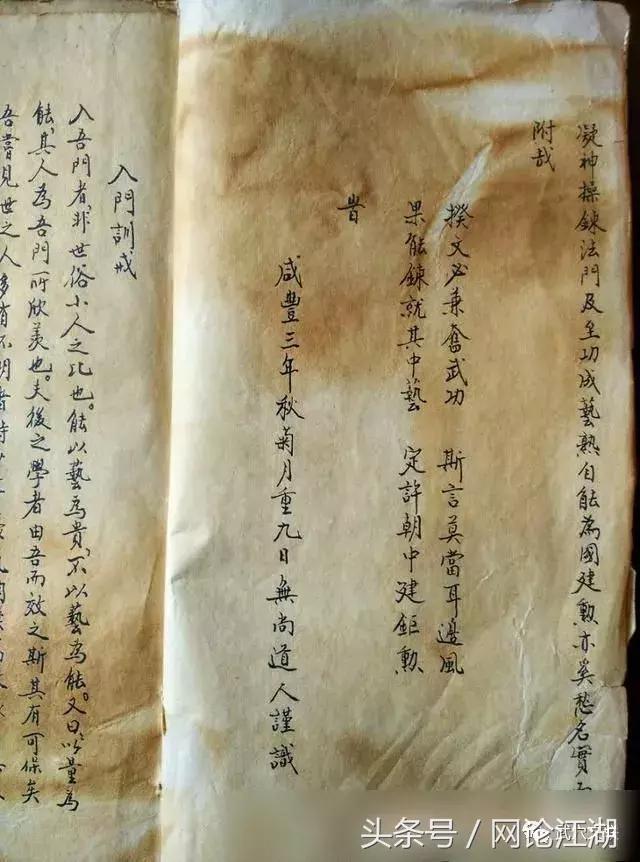 凝神操鍊法門及至功成藝熟自能為國建勳亦奚愁名實
附哉
揆文必兼奮武功 斯言莫當耳邊風
果能鍊就其中藝 定許朝中建鉅勲
旹
咸豐三年秋菊月重九日無尚道人謹識
入門訓戒
入吾門者，非世俗小人之比也。能以藝為貴，不以藝為能。又曰以量為
能，其人為吾門所欣羨也。夫後之學者由吾而效之斯其有可保矣
吾嘗見世之人多有不明者
头条号／网论江湖